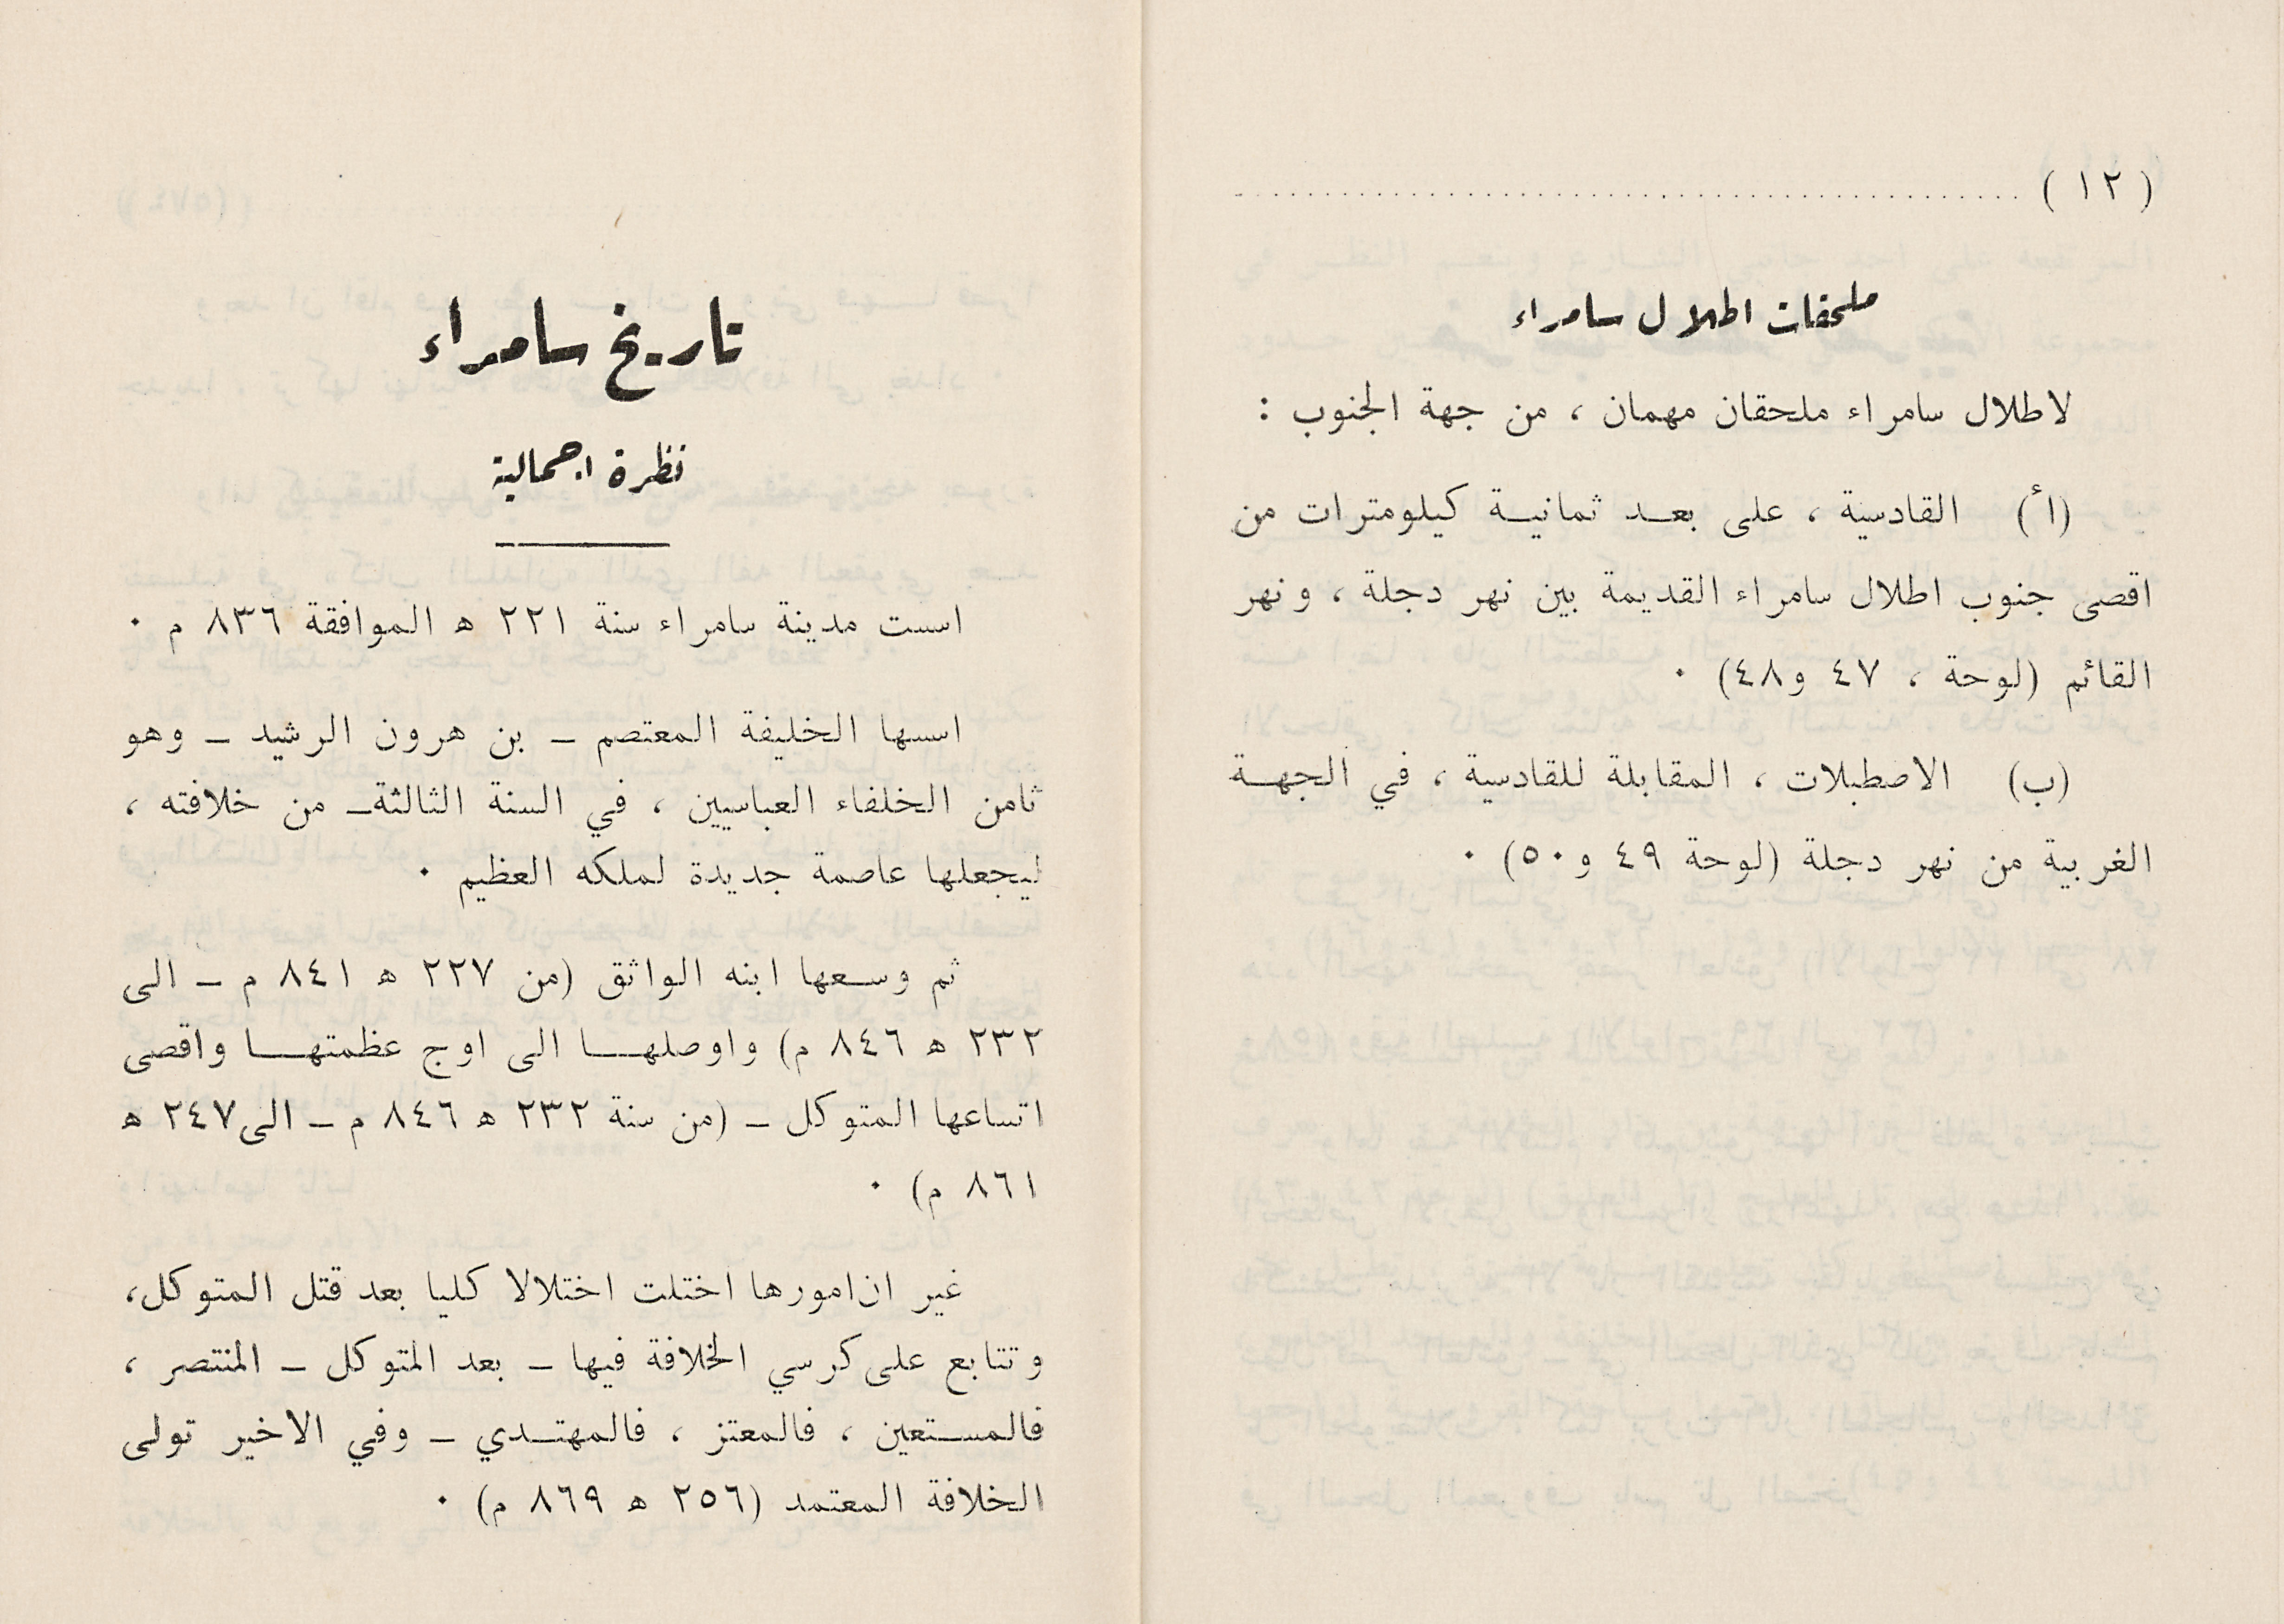 ( ١٢ ) ............................................................
ملحقات اطلال سامراء
لاطلال سامراء ملحقان مهمان ، من جهة الجنوب :
(أ) القادسية ، على بعد ثمانية كيلومترات من
اقصى جنوب اطلال سامراء القديمة بين نهر دجلة ، ونهر
القائم (لوحة ، ٤٧ و٤٨) ٠
(ب) الاصطبلات ، المقابلة للقادسية ، في الجهة
الغربية من نهر دجلة (لوحة ٤٩ و٥٠) ٠
تاريخ سامراء
نظرة اجمالية
اسست مدينة سامراء سنة ٢٢١ ه الموافقة ٨٣٦ م ٠
اسسها الخليفة المعتصم ـ بن هرون الرشيد ـ وهو
ثامن الخلفاء العباسيين ، في السنة الثالثةـ من خلافته ،
ليجعلها عاصمة جديدة لملكه العظيم ٠
ثم وسعها ابنه الواثق (من ٢٢٧ ه ٨٤١ م ـ الى
٢٣٢ ه ٨٤٦ م) واوصلها الى اوج عظمتها واقصى
اتساعها المتوكل ـ (من سنة ٢٣٢ ه ٨٤٦ م ـ الى ٢٤٧ ه
٨٦١ م) ٠
غير ان امورها اختلت اختلالا كليا بعد قتل المتوكل،
وتتابع على كرسي الخلافة فيها ـ بعد المتوكل ـ المنتصر ،
فالمستعين ، فالمعتز ، فالمهتدي ـ وفي الاخير تولى
الخلافة المعتمد (٢٥٦ ه ٨٦٩ م) ٠